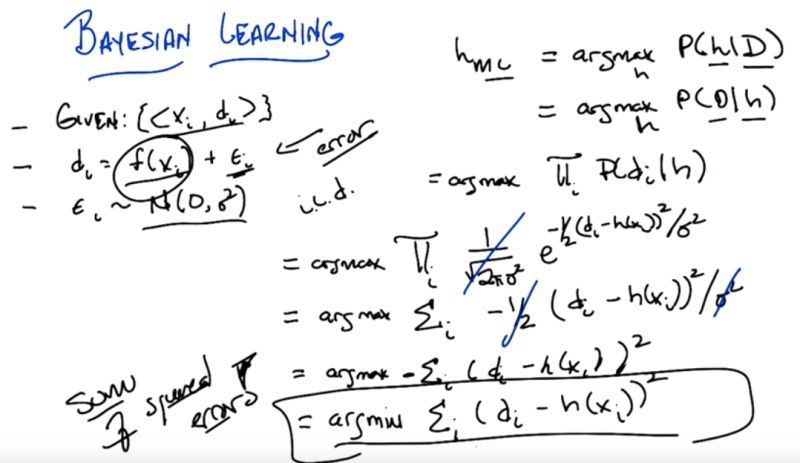 BAYESIAN LEARNING
- GIVEN: {<x_i, d_i>}
- d_i = f(x_i) + ε_i ← error
- ε_i ~ N(0, σ²) i.i.d.
h_ML = argmax_h P(h|D)
= argmax_h P(D|h)
= argmax ∏_i P(d_i|h)
= argmax ∏_i 1/√(2πσ²) e^(-½(d_i-h(x_i))²/σ²)
= argmax Σ_i -½ (d_i - h(x_i))²/σ²
= argmax -Σ_i (d_i - h(x_i))²
= argmin Σ_i (d_i - h(x_i))²
sum
of squared
errors